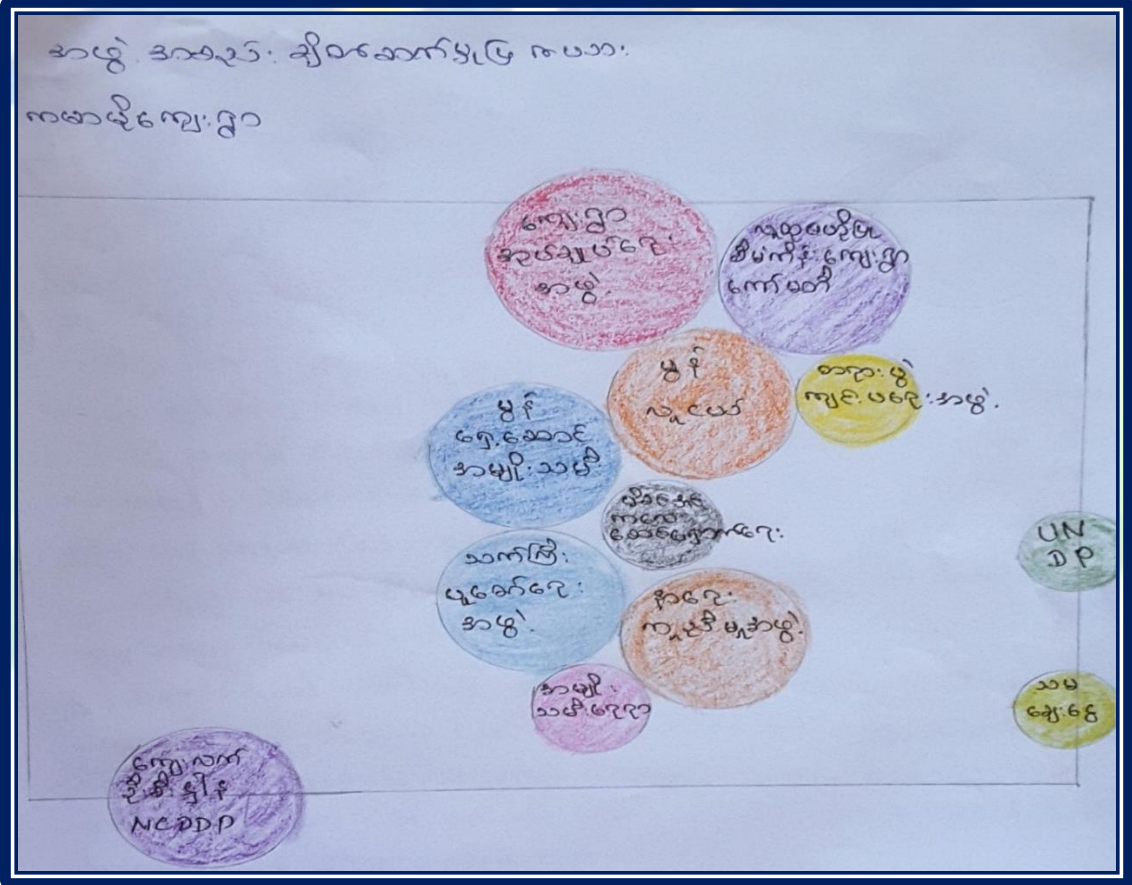 အဖွဲ့အစည်း ချိတ်ဆက်မှုပြ ကားချပ်
ကမာမိုကျေးရွာ
ကျေးရွာ
အုပ်ချုပ်ရေး
အဖွဲ့
လူထုဗဟိုပြု
စီမံကိန်းကျေးရွာ
ကော်မတီ
မွန်
လူငယ်
စျာပန
ကျင်းပရေးအဖွဲ့
မွန်
ရှေ့ဆောင်
အမျိုးသမီး
မိခင်နှင့်
ကလေး
စောင့်ရှောက်ရေး
သက်ကြီး
ပူဇော်ရေး
အဖွဲ့
နာရေး
ကူညီမှုအဖွဲ့
အမျိုး
သမီးရေးရာ
UN
DP
သမ
ချေးငွေ
ကျေးလက်
ဦးစီးဌာန
NCDDP